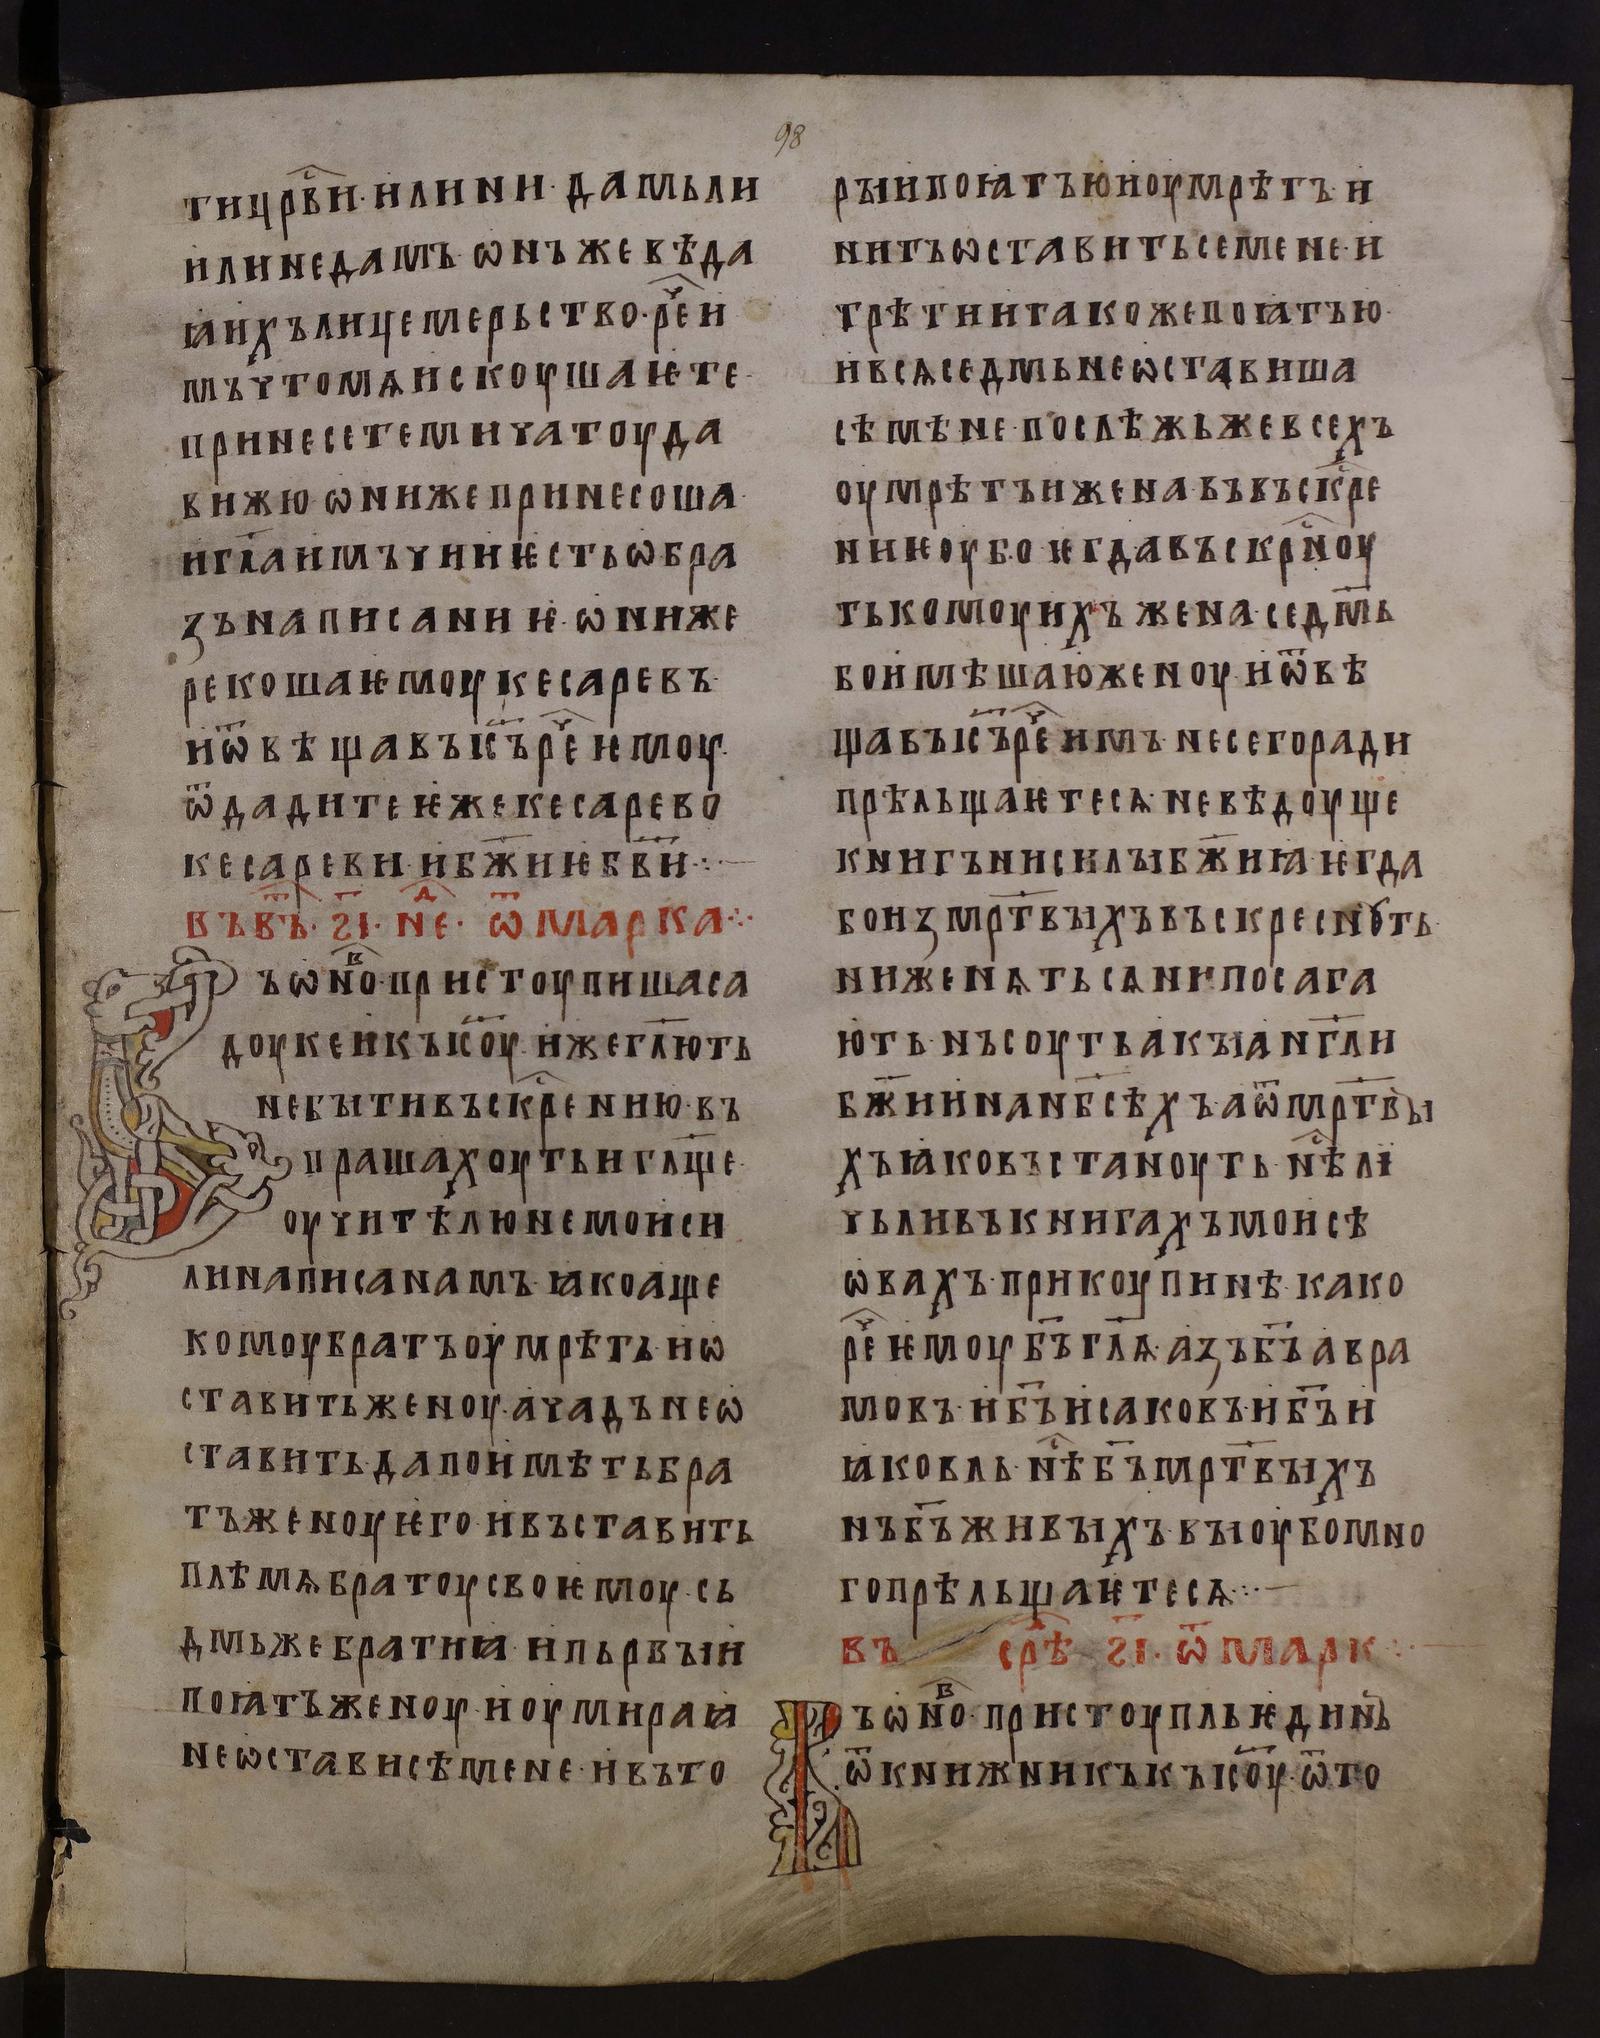 98
тицрв҃и· или ни· дамъли
или недамъ· ѡнъже вѣда
ꙗ ихълицемерьство· ре҃ и
мъ что мѧ искоушаѥте·
принесетеми чатоу да
вижю· ѡниже принесоша·
и гл҃а имъ чии ѥсть ѡбра
зъ написаниѥ· ѡниже
рекоша ѥмоу кесаревъ·
и ѿвѣщавъ ic҃ъ ре҃ ѥмоу·
ѿдадите ѥже кесарево
кесареви· и бж҃иѥ бв҃и·:·—
въ въ҃· ѕ҃і· не҃· ѿ марка·:·
ъ ѡно҃· пристоупиша са
доукеи къ іс҃оу· иже гл҃ють
небыти въскр҃ению· въ
прашахоуть и гл҃ще·
оучитѣлю не моиси
ли написа намъ· ꙗко аще
комоу братъ оумрѣть· и ѡ
ставить женоу· а чадъ не ѡ
ставить· да поимѣть бра
тъ женоу ѥго· и въставить
плѣмѧ братоу своѥмоу· сь
дмьже братиꙗ· и пьрвыи
поꙗтъ женоу· и оумираꙗ
не ѡстави сѣмене· и въто
рыи поꙗтъ ю и оумрѣтъ· и
ни тъ ѡставить семене· и
трѣтии такоже поꙗтъ ю·
и всѧ седмь не ѡставиша
сѣмѣне· послѣжьже всехъ
оумрѣтъ и жена· въ въскр҃е
ниѥ оубо ѥгда въскрн҃оу
ть комоу ихъ жена· седм҃ь
бо имѣша ю женоу· и ѿвѣ
щавъ іс҃ъ ре҃ имъ· не сего ради
прѣльщаѥтесѧ· не вѣдоуще
книгъ ни силы бж҃иꙗ· ѥгда
бо из мрт҃выхъ въскреснꙋть·
ни женѧтьсѧ ни посага
ють· нъ соуть акы англ҃и
бж҃ии на нб҃сѣхъ· а ѿ мрт҃вы
хъ ꙗко въстаноуть· нѣ҃ лі
чьли въ книгахъ моисѣ
ѡвахъ· при коупинѣ· како
ре҃ ѥмоу бъ҃ гл҃ѧ· азъ бъ҃ авра
мовъ· и бъ҃ исаковъ· и бъ҃ и
ꙗковль· нѣ҃ бъ҃ мрт҃выхъ
нъ бъ҃ живыхъ· вы оубо мно
го прѣльщаѥтесѧ·:·—
въ срѣ҃ ѕ҃і· ѿ марк·:·
ъ ѡно҃· пристоупль ѥдинъ
ѿ книжникъ къ іс҃оу· ѿ то